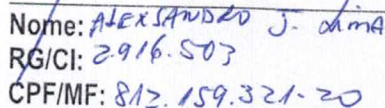 Nome: ALEXSANDRO J. Lima
RG/CI: 2.916.503
CPF/MF: 812.159.321-20